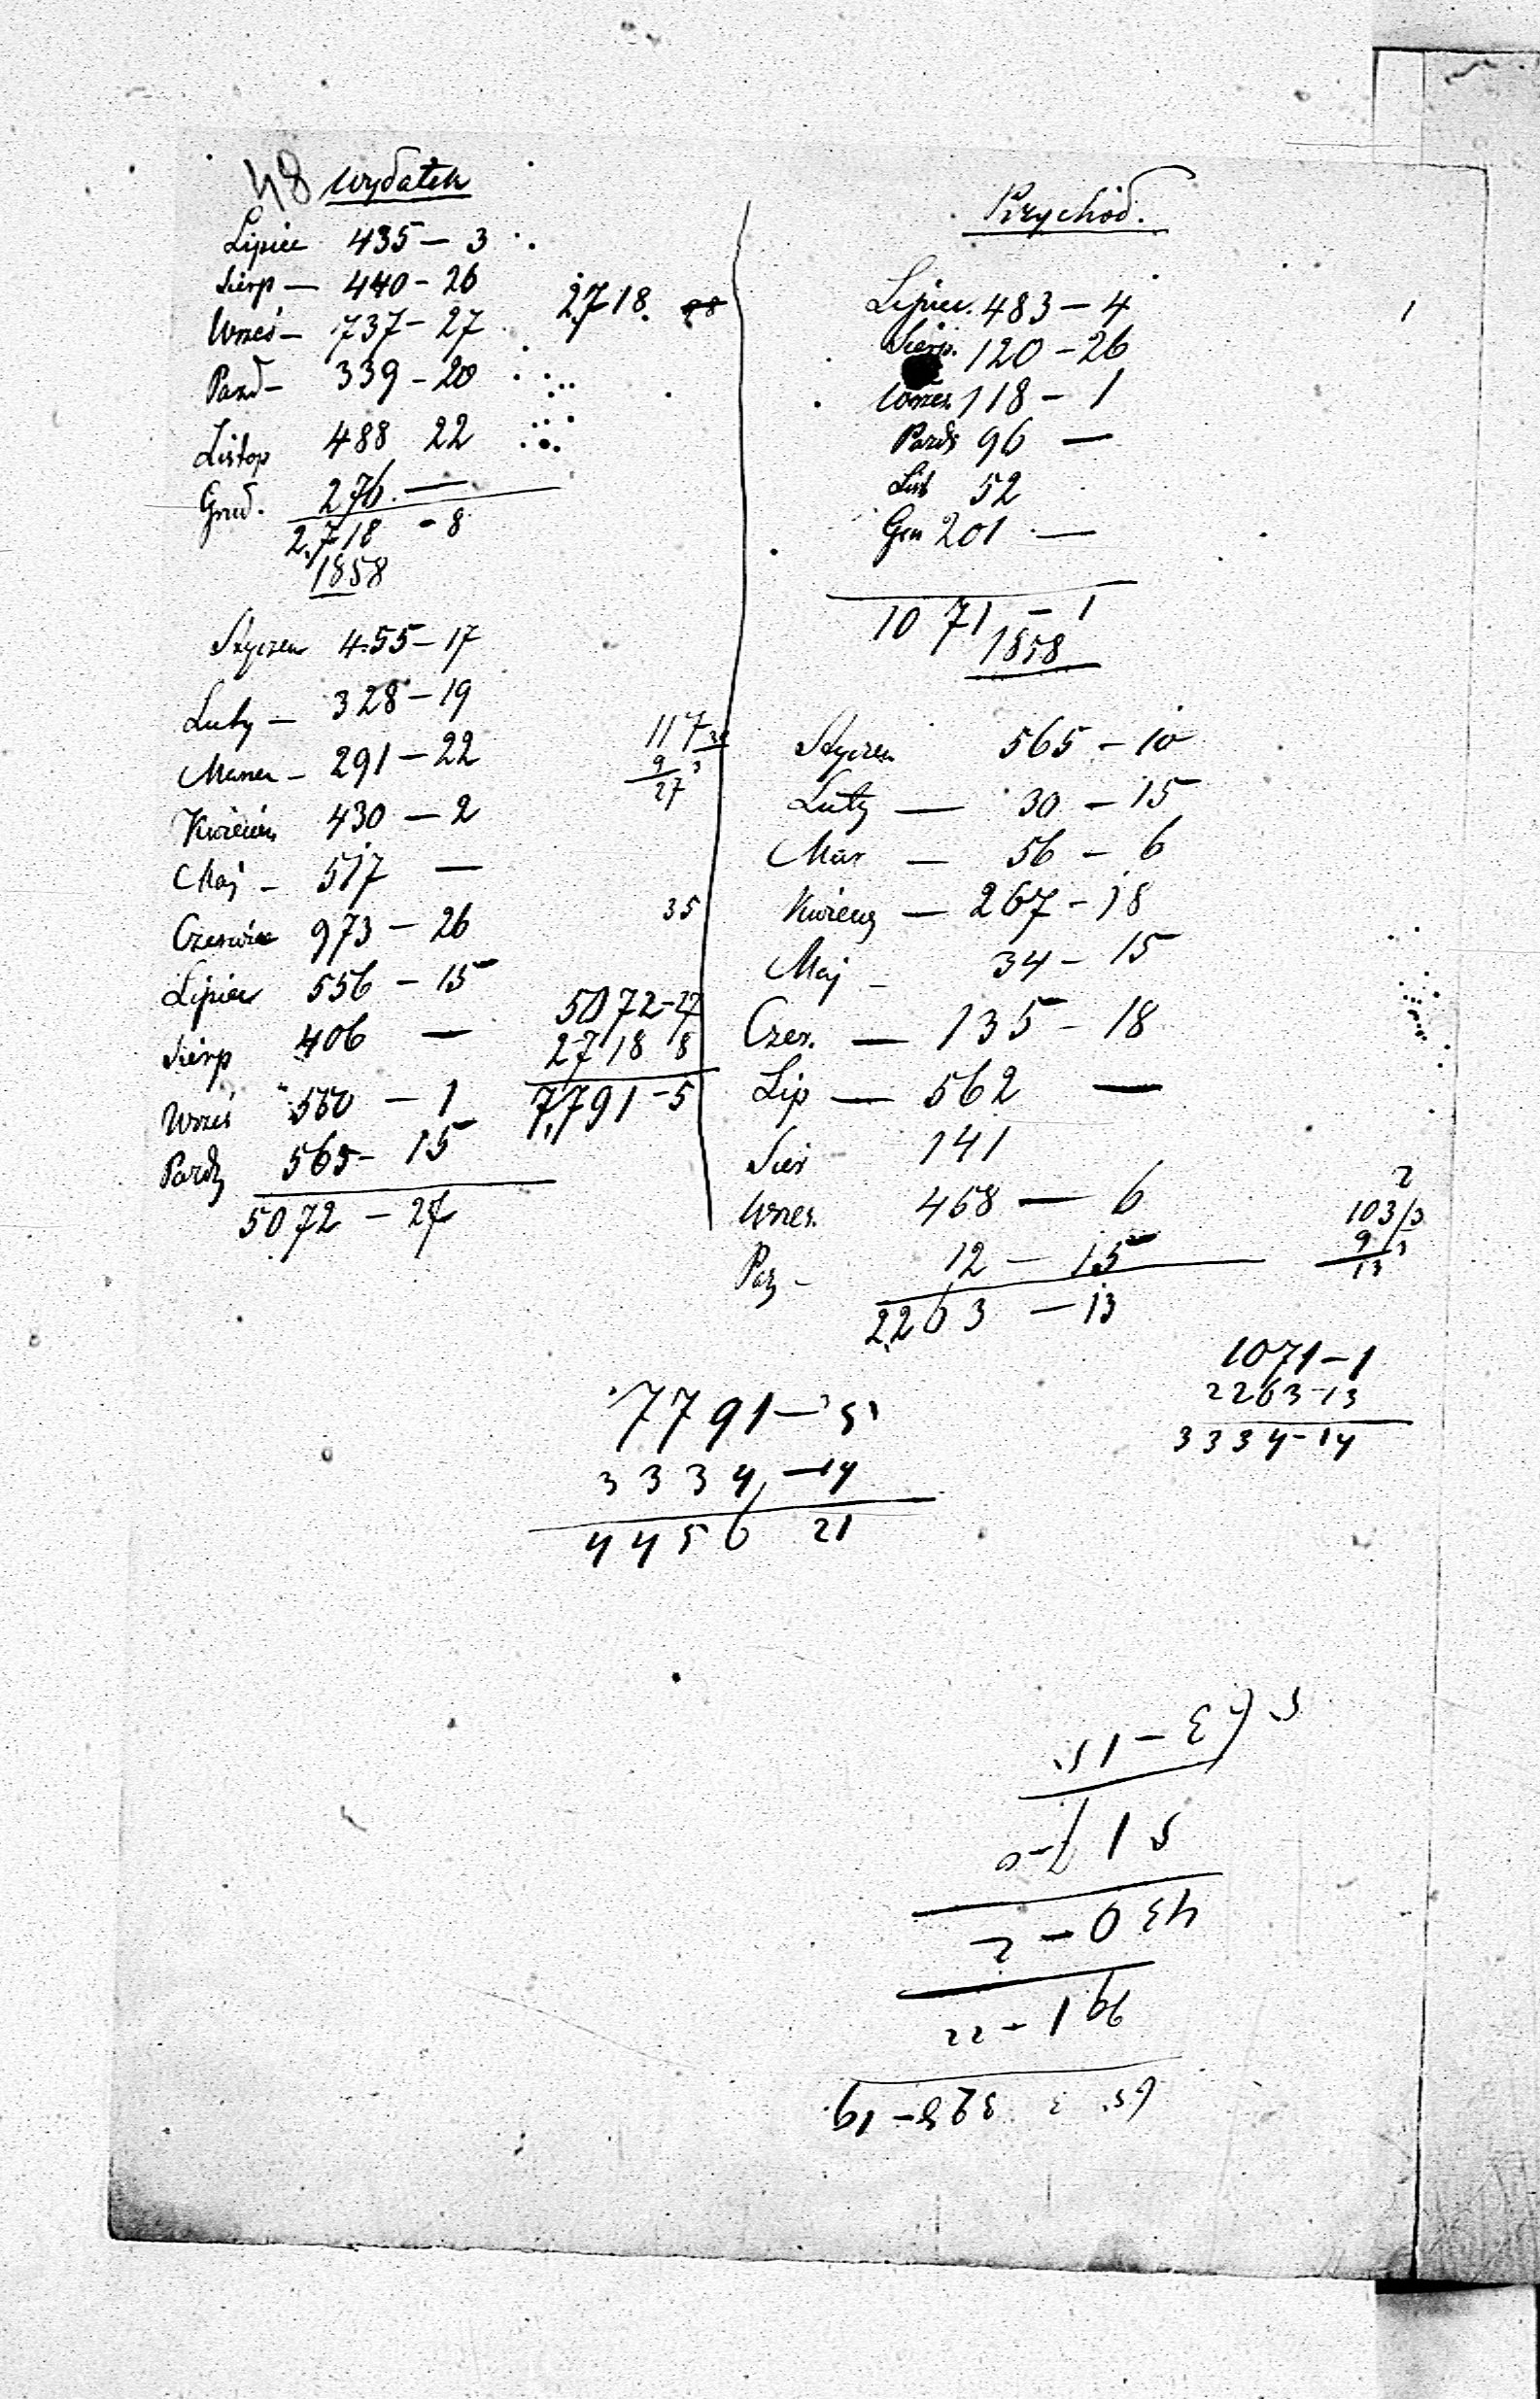 48 Wydatek
Lipiec 435 – 3
Sierp – 440 – 26
Wrześ – 737 – 27
2,718. 28
Pazd – 339 – 20
Listop 488 22
Grud. 276. —
2,718 – 8
1858
Styczen 455 – 17
Luty – 328 – 19
Marzec – 291 – 22
Kwiecień 430 – 2
Maj – 517 —
Czerwiec 973 – 26
Lipiec 556 – 15
Sierp 406 —
Wrześ 560 – 1
Pazdz 565 – 15
5072 – 27
117/30
9 3
27
35
5072 – 27
2718 8
7,791 – 5
Przychod.
Lipiec. 483 – 4
Sierp. 120 – 26
Wrzes. 118 – 1
Pazdz 96 —
List 52
Gru 201 —
1071 – 1
1858
Styczen 565 – 10
Luty — 30 – 15
Mar — 56 – 6
Kwiecz — 267 – 18
Maj – 34 – 15
Czer. — 135 – 18
Lip — 562 —
Sier 141
Wrzes. 458 — 6
Paz – 12 – 15
2,263 – 13
2
103/3
9 3
13
1071 – 1
2263 – 13
3334 – 14
7791 – 5
3334 – 14
4456 21
328 – 19
291 – 22
430 – 2
517 – 0